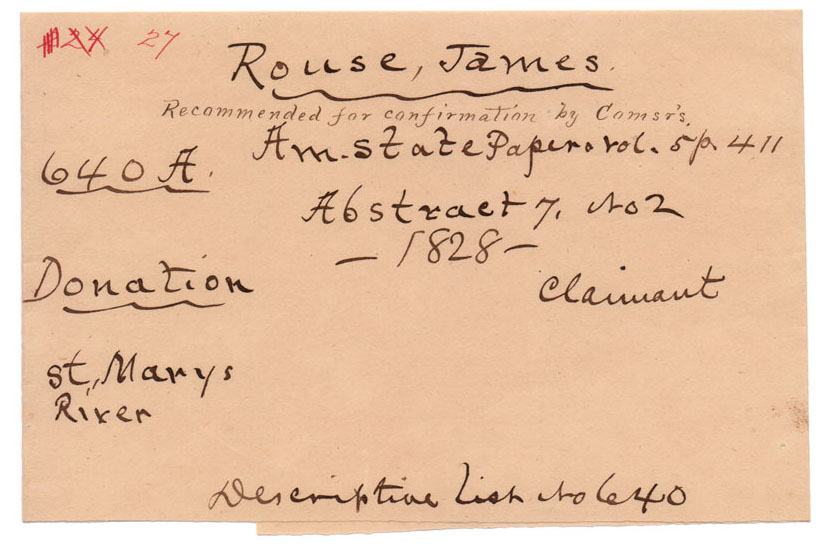 24 27
Rouse, James.
Recommended for confirmation by Comsr's.
640 A.
Am. State Papers vol. 5 p. 411
Abstract 7, No 2
— 1828 —
Donation
Claimant
St, Marys
River
Descriptive List No 640